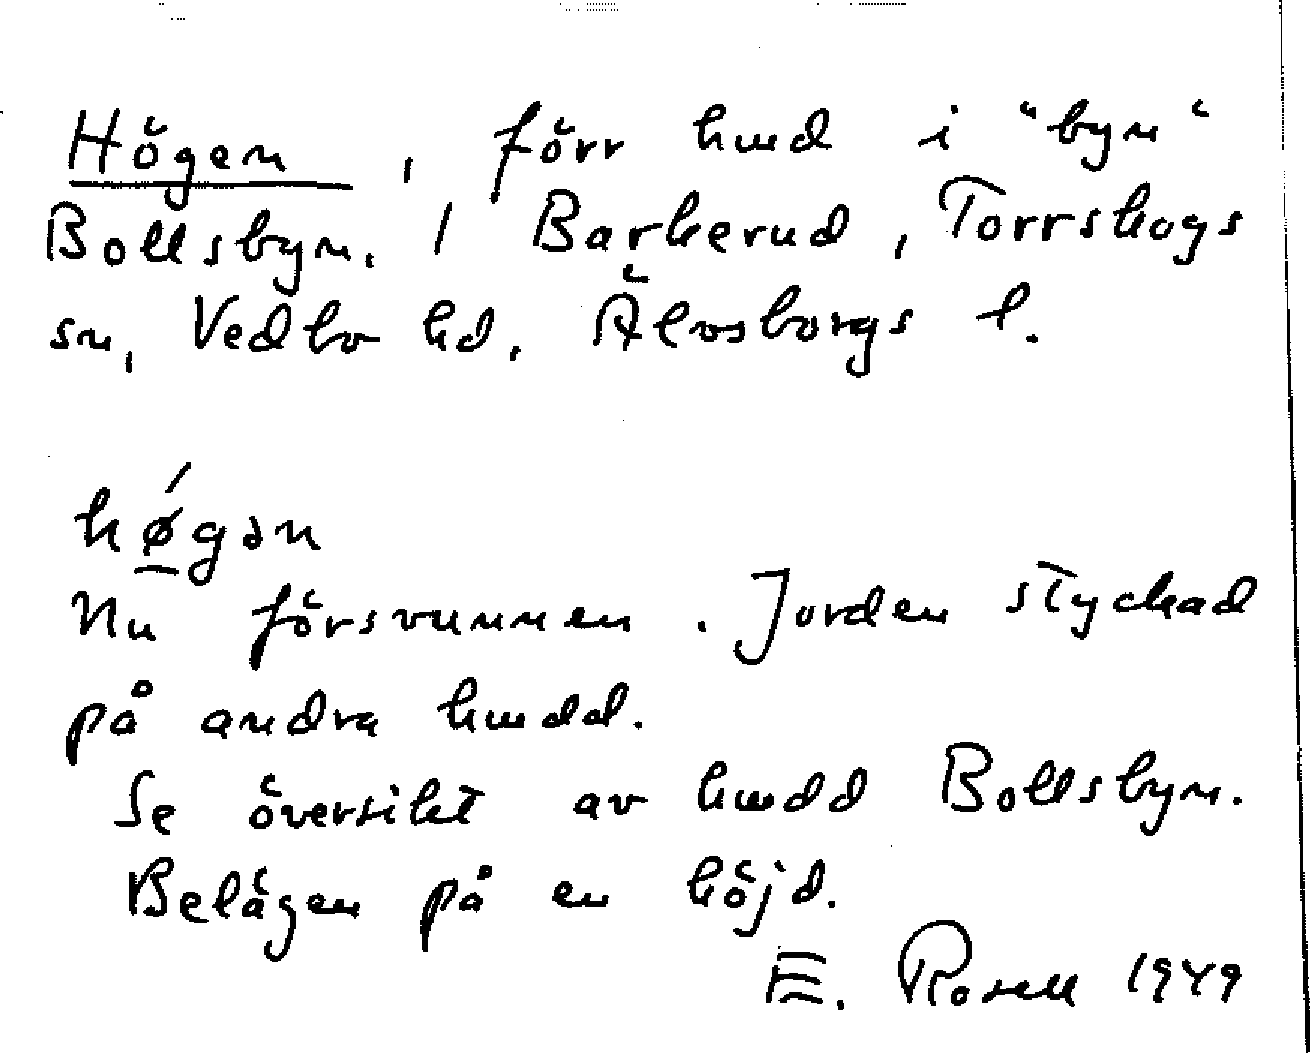 Högen, förr hmd i "byn"
Bollsbyn. 1 Barkerud, Torrskogs
sn, Vedbo hd, Älvsborgs l.
hǿ̲gən
Nu försvunnen. Jorden styckad
på andra hmdd.
Se översikt av hmdd Bollsbyn.
Belägen på en höjd.
E. Rosell 1949